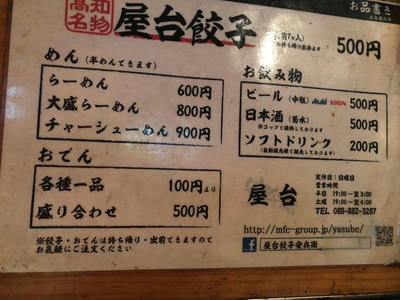 高知名物
屋台餃子
お品書き
500円
めん（半めんできます）
らーめん 600円
大盛らーめん 800円
チャーシューめん 900円
おでん
各種一品 100円より
盛り合わせ 500円
※餃子・おでんは持ち帰り・出前できますので
お気軽にご注文ください
お飲み物
ビール（中瓶）Asahi KIRIN 500円
日本酒（菊水） 500円
※コップで提供しております
ソフトドリンク 200円
（自動販売機で販売しております）
屋台
定休日：日曜日
営業時間
平日 19:00〜翌3:00
土曜 19:00〜翌4:00
TEL 088-882-3287
http://mfc-group.jp/yasube/
f 屋台餃子安兵衛